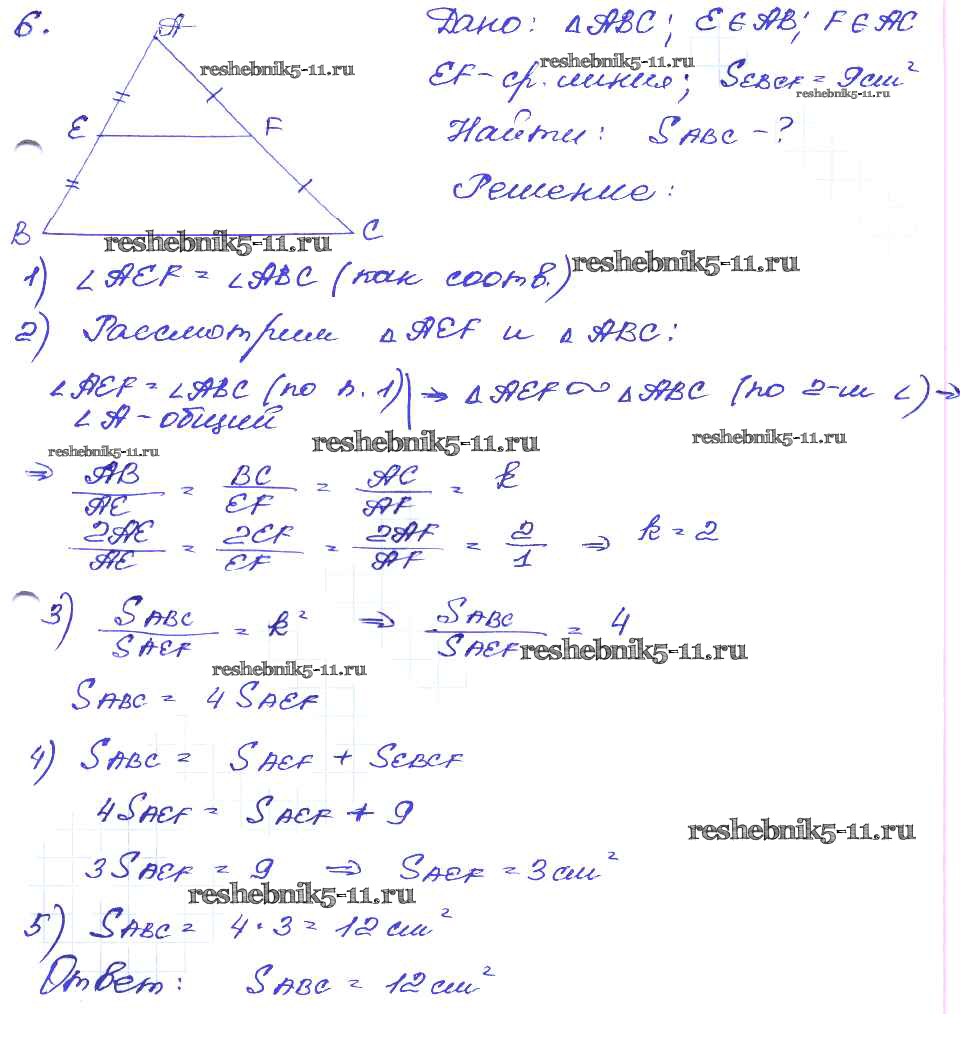 6.
A
Дано: △ABC; E∈AB; F∈AC
reshebnik5-11.ru
reshebnik5-11.ru
EF - ср. линия; S EBCF = 9 см²
reshebnik5-11.ru
E F
Найти: S ABC - ?
Решение:
B C
reshebnik5-11.ru
reshebnik5-11.ru
1) ∠AEF = ∠ABC (как соотв.)
2) Рассмотрим △AEF и △ABC:
∠AEF = ∠ABC (по п. 1) | ⇒ △AEF ∾ △ABC (по 2-м ∠) ⇒
∠A - общий
reshebnik5-11.ru
reshebnik5-11.ru
reshebnik5-11.ru
⇒ AB/AE = BC/EF = AC/AF = k
2AE/AE = 2EF/EF = 2AF/AF = 2/1 ⇒ k = 2
3) S ABC/S AEF = k² ⇒ S ABC/S AEF = 4
reshebnik5-11.ru
reshebnik5-11.ru
S ABC = 4 S AEF
4) S ABC = S AEF + S EBCF
4 S AEF = S AEF + 9
reshebnik5-11.ru
3 S AEF = 9 ⇒ S AEF = 3 см²
reshebnik5-11.ru
5) S ABC = 4 · 3 = 12 см²
Ответ: S ABC = 12 см²